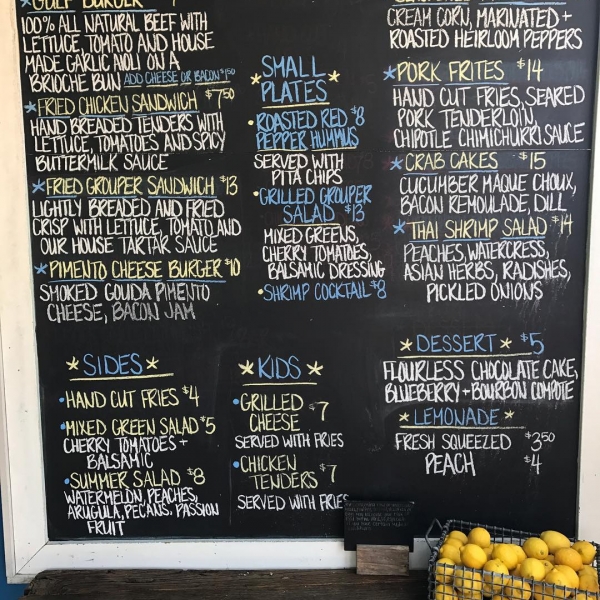 GULF BURGER
100% ALL NATURAL BEEF WITH
LETTUCE, TOMATO AND HOUSE
MADE GARLIC AIOLI ON A
BRIOCHE BUN ADD CHEESE OR BACON $1.50
FRIED CHICKEN SANDWICH $7.50
HAND BREADED TENDERS WITH
LETTUCE, TOMATOES AND SPICY
BUTTERMILK SAUCE
FRIED GROUPER SANDWICH $13
LIGHTLY BREADED AND FRIED
CRISP WITH LETTUCE, TOMATO AND
OUR HOUSE TARTAR SAUCE
PIMENTO CHEESE BURGER $10
SMOKED GOUDA PIMENTO
CHEESE, BACON JAM
SMALL
PLATES
ROASTED RED $8
PEPPER HUMMUS
SERVED WITH
PITA CHIPS
GRILLED GROUPER
SALAD $13
MIXED GREENS,
CHERRY TOMATOES,
BALSAMIC DRESSING
SHRIMP COCKTAIL $8
CREAM CORN, MARINATED +
ROASTED HEIRLOOM PEPPERS
PORK FRITES $14
HAND CUT FRIES, SEARED
PORK TENDERLOIN,
CHIPOTLE CHIMICHURRI SAUCE
CRAB CAKES $15
CUCUMBER MAQUE CHOUX,
BACON REMOULADE, DILL
THAI SHRIMP SALAD $14
PEACHES, WATERCRESS,
ASIAN HERBS, RADISHES,
PICKLED ONIONS
SIDES
HAND CUT FRIES $4
MIXED GREEN SALAD $5
CHERRY TOMATOES +
BALSAMIC
SUMMER SALAD $8
WATERMELON, PEACHES,
ARUGULA, PECANS, PASSION
FRUIT
KIDS
GRILLED $7
CHEESE
SERVED WITH FRIES
CHICKEN $7
TENDERS
SERVED WITH FRIES
DESSERT $5
FLOURLESS CHOCOLATE CAKE,
BLUEBERRY + BOURBON COMPOTE
LEMONADE
FRESH SQUEEZED $3.50
PEACH $4